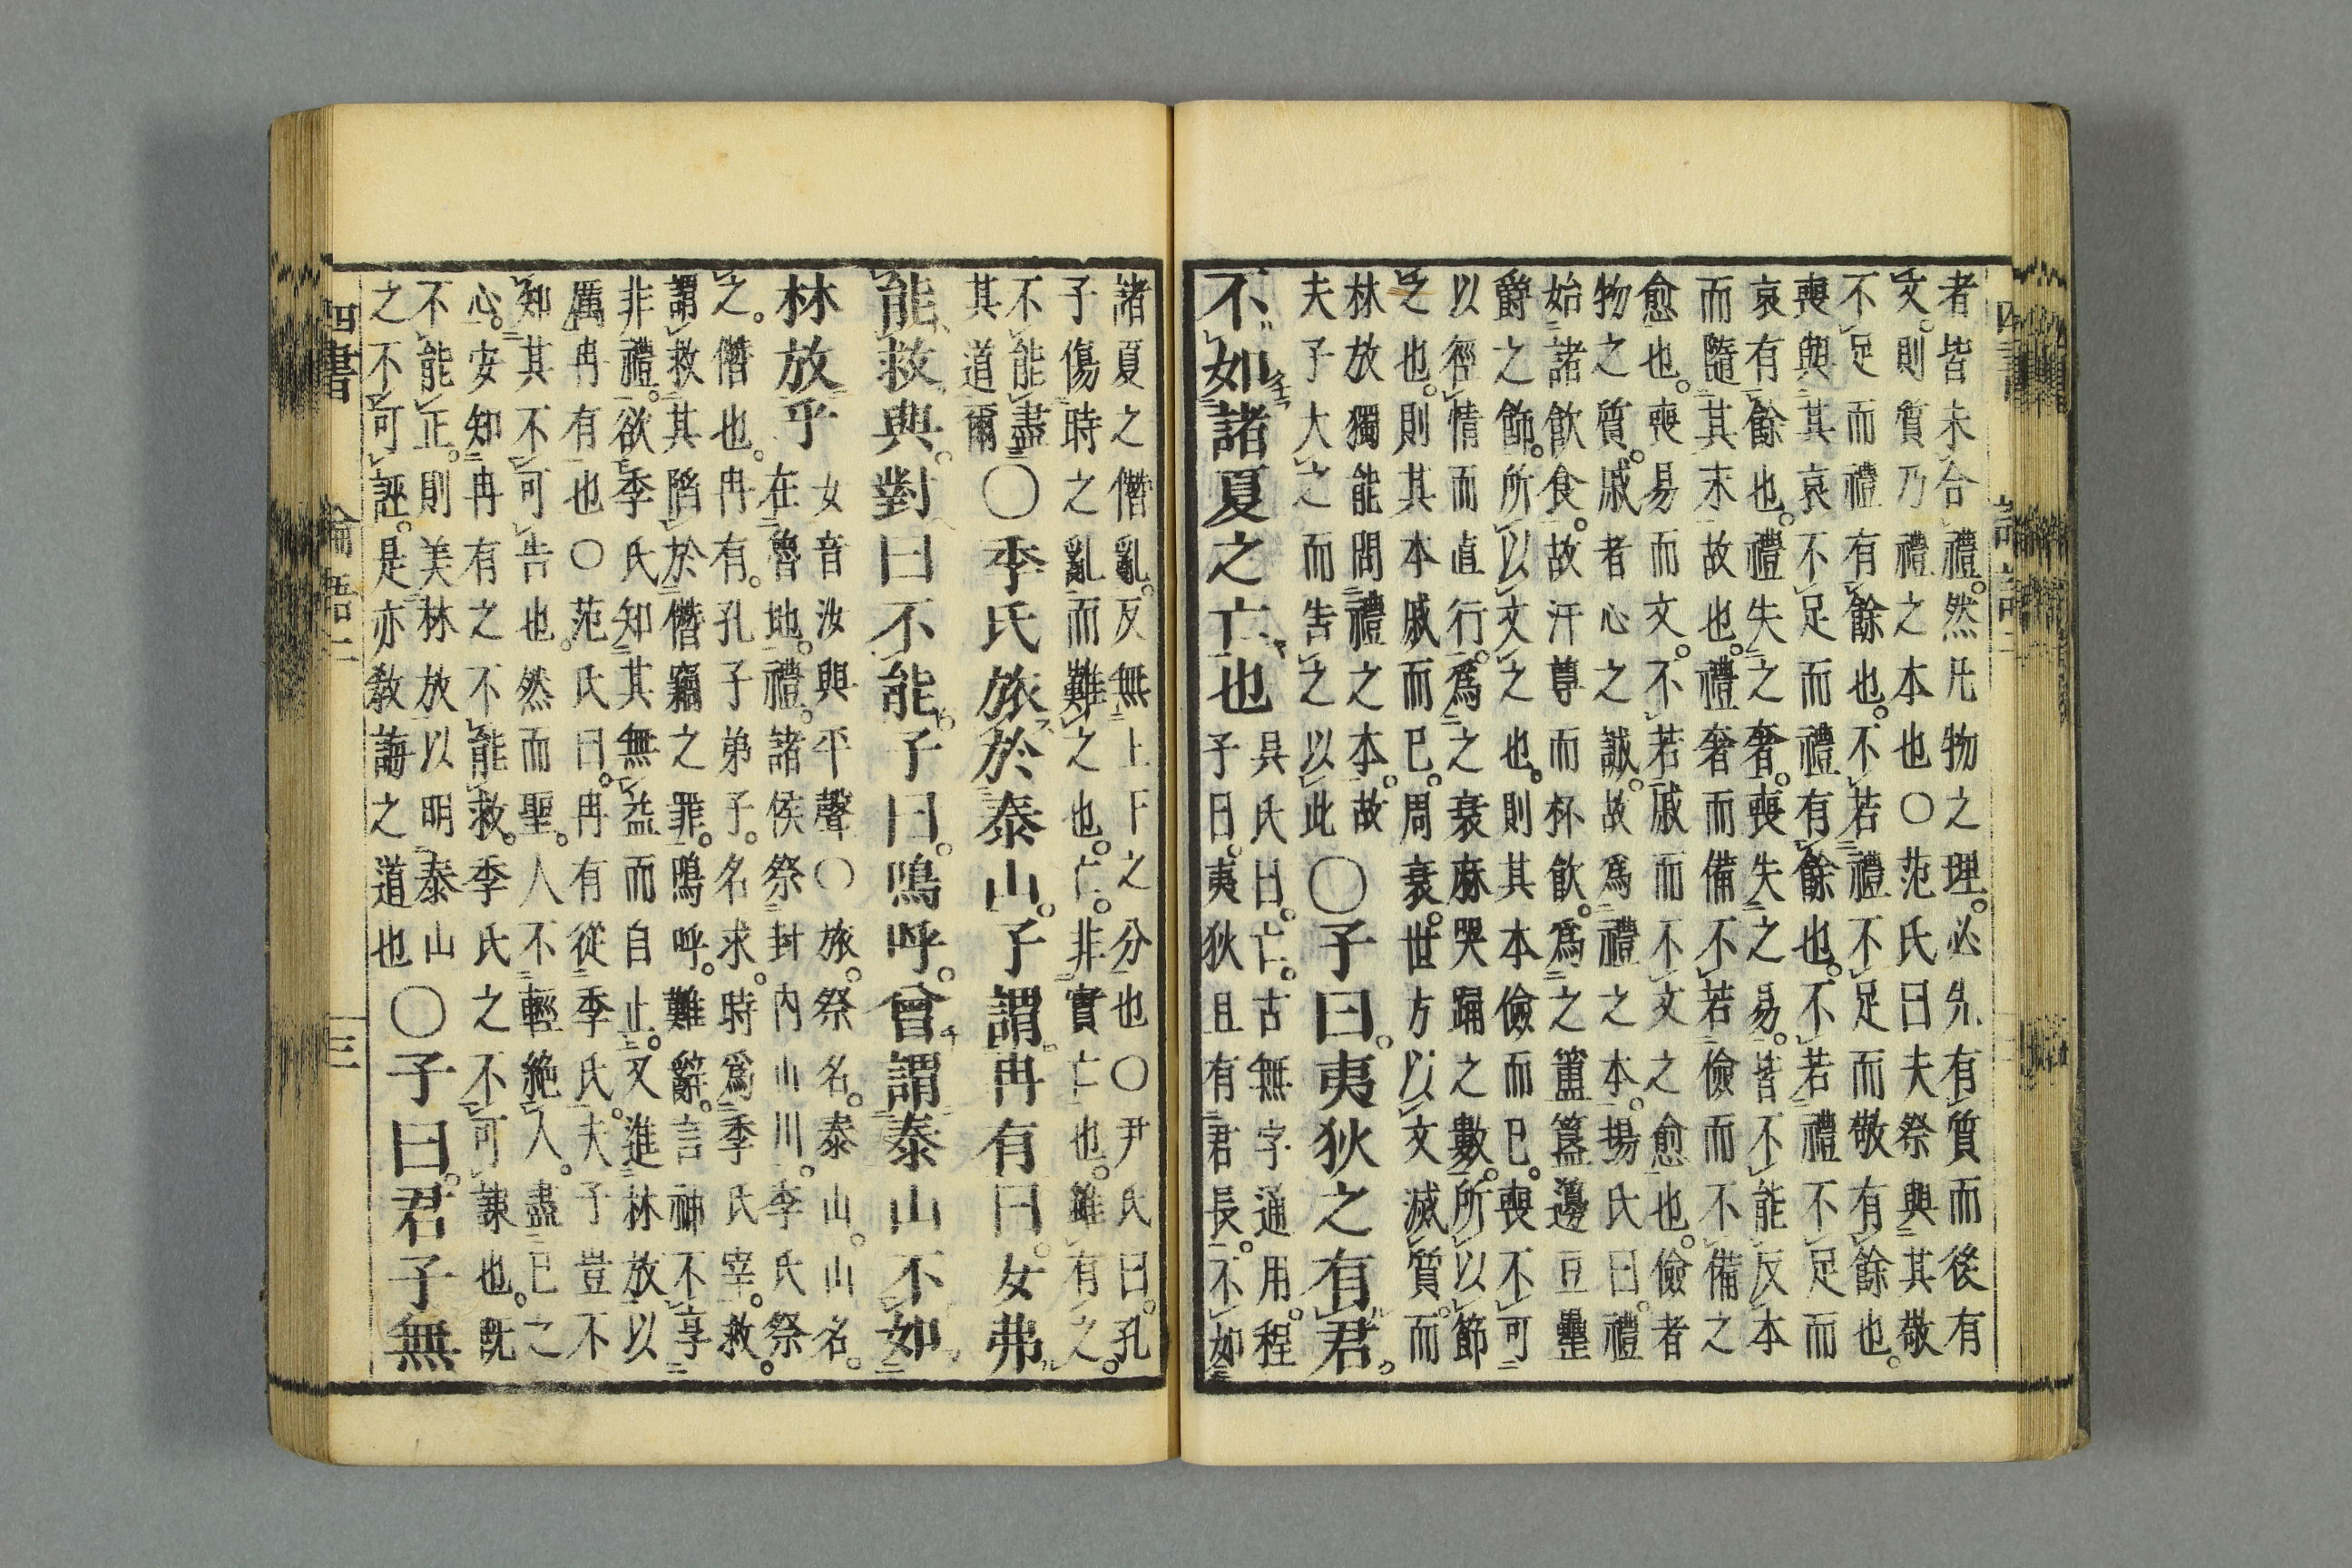 者皆未合禮。然凡物之理。必先有質而後有
文。則質乃禮之本也○范氏曰夫祭與其敬
不足而禮有餘也。不若禮不足而敬有餘也。
喪與其哀不足而禮有餘也。不若禮不足而
哀有餘也。禮失之奢。喪失之易。皆不能反本
而隨其末故也。禮奢而備不若儉而不備之
愈也。喪易而文。不若戚而不文之愈也。儉者
物之質。戚者心之誠。故爲禮之本。揚氏曰。禮
始諸飮食。故汙尊而杯飮。爲之簠簋籩豆罍
爵之飾。所以文之也。則其本儉而已。喪不可
以徑情而直行。爲之衰麻哭踊之數。所以節
之也。則其本戚而已。周衰。世方以文滅質。而
林放獨能問禮之本。故
夫子大之而告之以此
○子曰。夷狄之有君。
不如諸夏之亡也
吳氏曰。亡。古無字通用。程
子曰。夷狄且有君長。不如
諸夏之僭亂。反無上下之分也○尹氏曰。孔
子傷時之亂而難之也。亡。非實亡也。雖有之。
不能盡
其道爾
○季氏旅於泰山。子謂冉有曰。女弗
能救與。對曰不能。子曰。嗚呼。曾謂泰山不如
林放乎
女音汝與平聲○旅。祭名。泰山。山名。
在魯地。禮。諸侯祭封內山川。季氏祭
之。僭也。冉有。孔子弟子。名求。時爲季氏宰。救。
謂救其陷於僭竊之罪。嗚呼。難辭。言神不享
非禮。欲季氏知其無益而自止。又進林放以
厲冉有也○范氏曰。冉有從季氏。夫子豈不
知其不可告也。然而聖。人不輕絶人。盡已之
心。安知冉有之不能救。季氏之不可諫也。既
不能正。則美林放以明泰山
之不可誣。是亦敎誨之道也
○子曰。君子無
四書
論語二
三